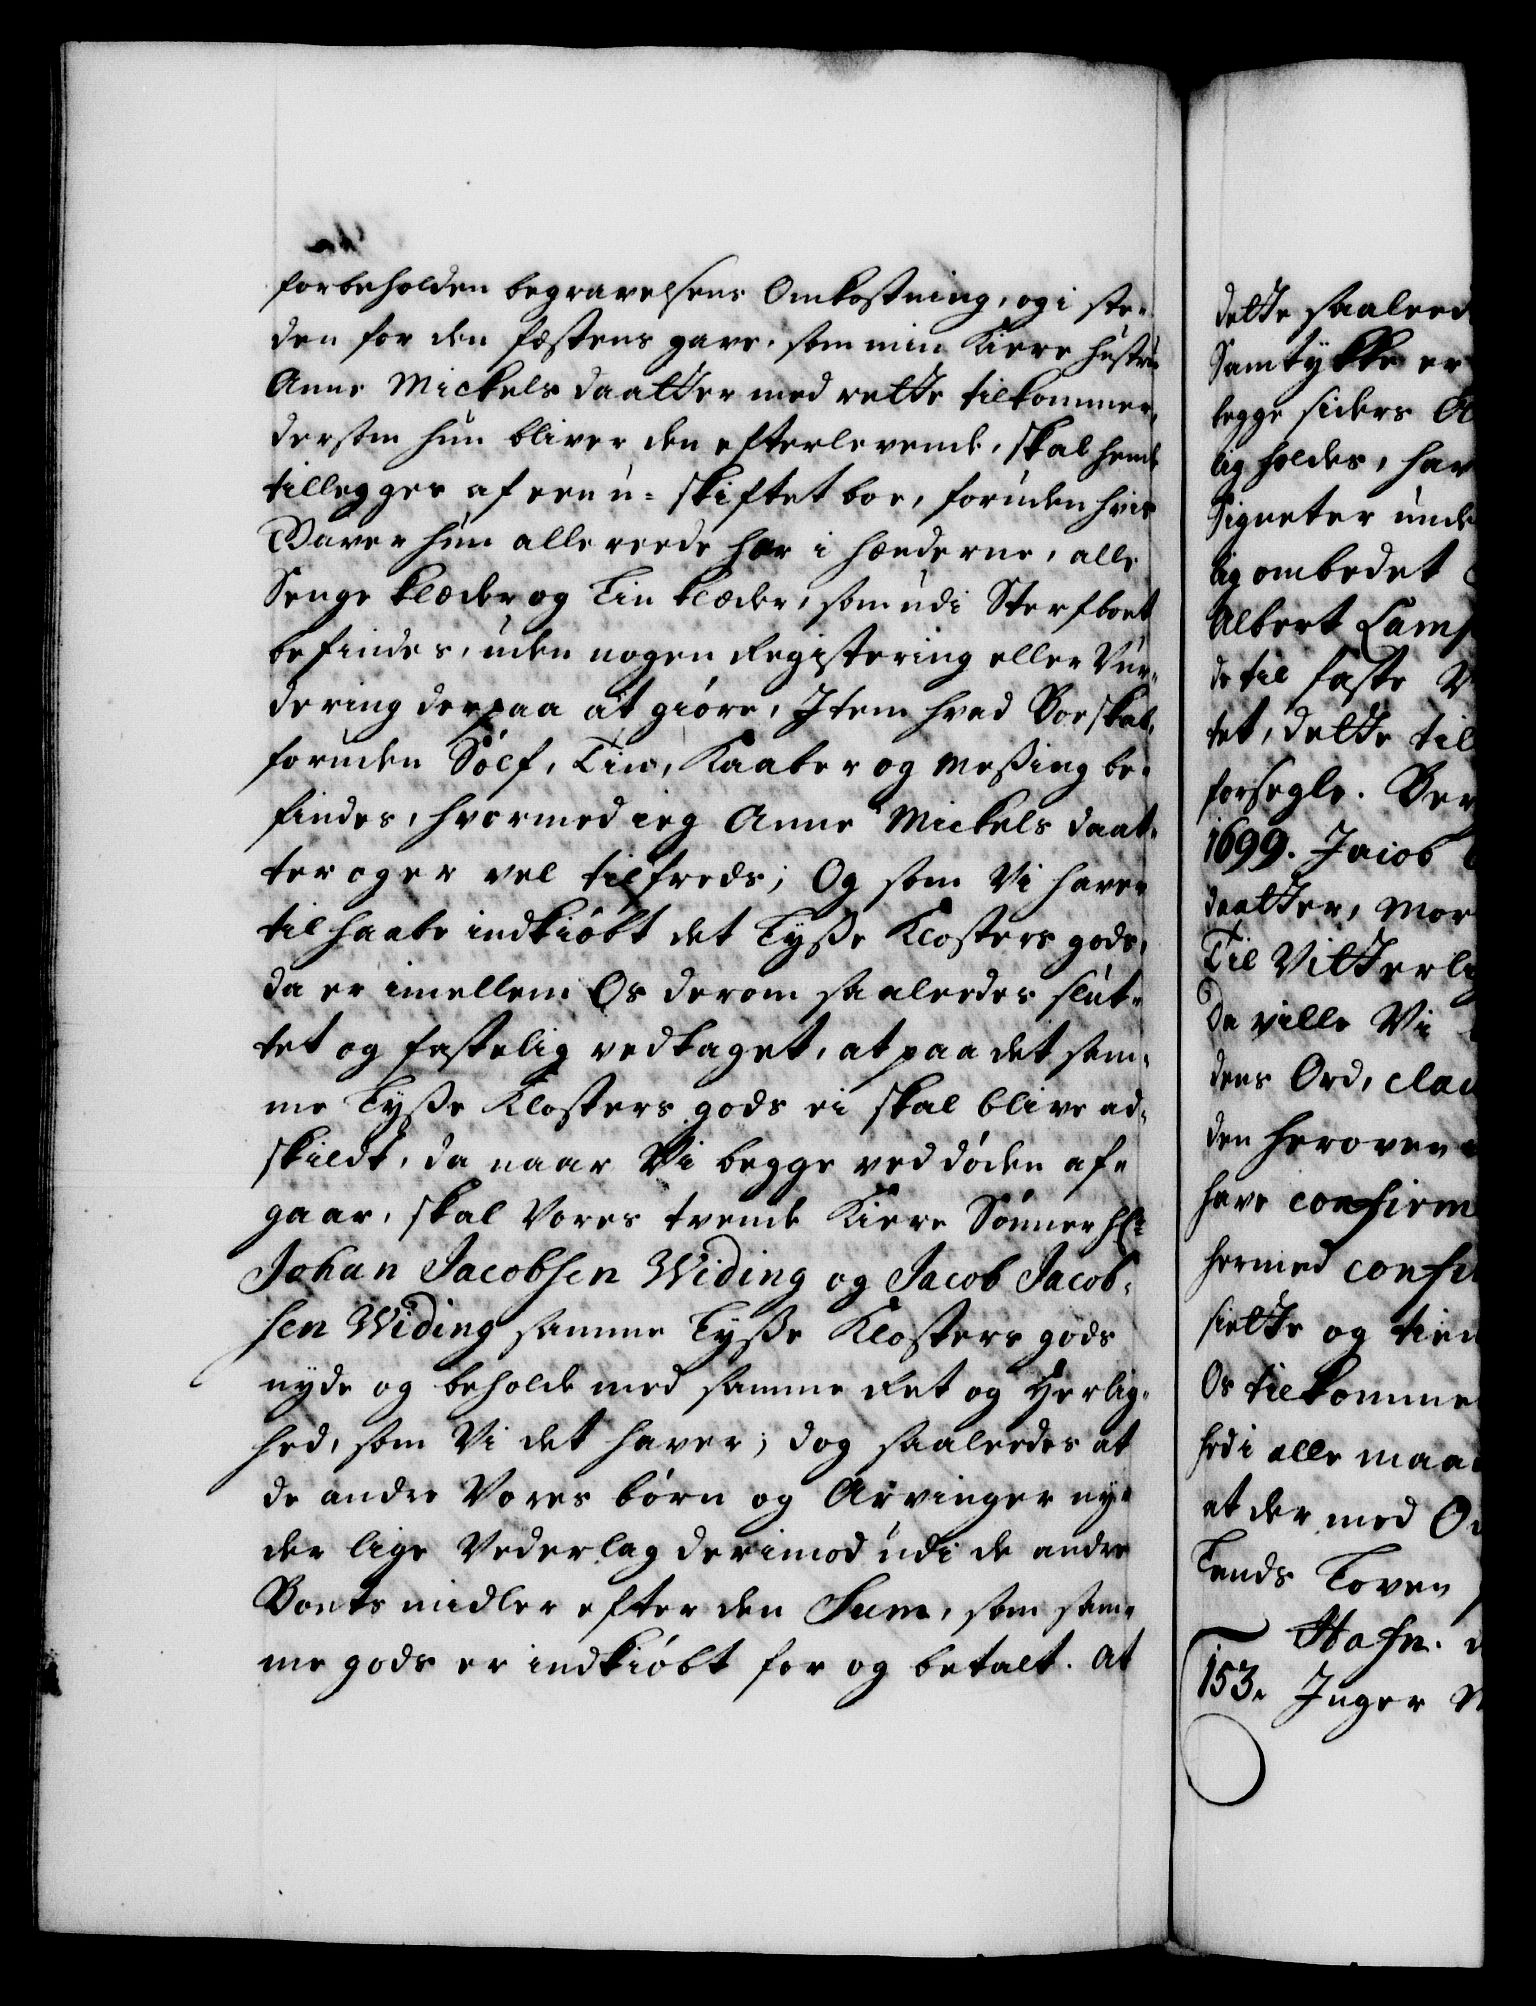 forbeholden begravelsens Omkostning, og i ste-
den for den festens gave, som min Kiere hustru
Anne Mickels daatter med rette tilkommer,
dersom hun bliver den efterlevende, skal hende
tillegges af een u-skiftet boe, foruden hvis
Vaver hun allereede har i hænderne, alle
Senge klæder og Lin klæder, som udi Sterfboet
befindes, uden nogen Registering eller Vur-
dering derpaa at giøre, Item hvad Boeskab,
foruden Sølf, Tin, Kaaber og Messing be-
findes, hvormed ieg Anne Mickels daat-
ter og er vel tilfreds; Og som Vi haver
tilhaabe indkiøbt det Lysse Klosters gods,
da er imellem Os derom saaledes slut-
tet og fastelig vedtaget, at paa det sam-
me Lysse Klosters gods ei skal blive ad-
skildt, da naar Vi begge ved døden af-
gaar, skal Vores tvende Kiere Sønner Hr:
Johan Jacobsen Widing og Jacob Jacob-
sen Widing samme Lysse Klosters gods
nyde og beholde med samme Ret og Herlig-
hed, som Vi det haver; dog saaledes at
de andre Vores børn og Arvinger ny-
der lige Vederlag derimod udi de andre
Boets midler efter den Sum, som sam-
me gods er indkiøbt for og betalt. At
dette saaleed
Samtykke er
begge siders A
lig holdes, hav
Signeter unde
lig ombedet
Albert Lams
de til faste V
tet, dette til
forsegle. Ber
1699. Jacob
daatter, Mor
Til Vitterli
Da ville Vi
dens Ord, clau
den heroven
have confirm
hermed confi
siette og tien
Os tilkomme
hed i alle maa
et der med O
Lands Loven
Hafn. d
153. Inger M